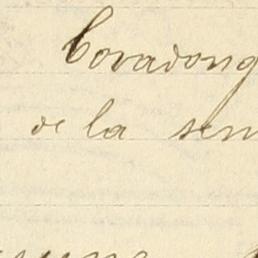 Covadong
de la sem